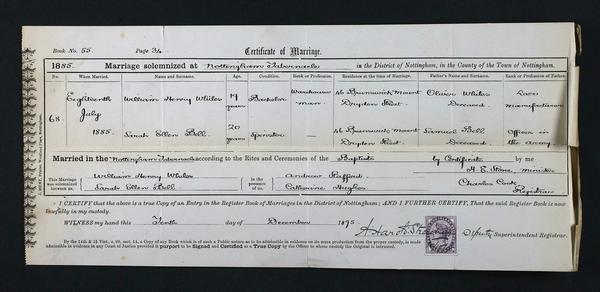 Book No. 55. Page 34. Certificate of Marriage.
1885. Marriage solemnized at Nottingham Tabernacle in the District of Nottingham, in the County of the Town of Nottingham.
No. When Married. Name and Surname. Age. Condition. Rank or Profession. Residence at the time of Marriage. Father's Name and Surname. Rank or Profession of Father.
68. Eighteenth July 1885.
William Henry 19 years Bachelor Warehouseman 46 Brunswick Mount Dryden Street Oliver Deceased Lace manufacturer
Sarah Ellen Bell 20 years Spinster — 46 Brunswick Mount Dryden Street Samuel Bell Deceased Officer in the army
Married in the Nottingham Tabernacle according to the Rites and Ceremonies of the Baptists by Certificate by me
This Marriage was solemnized between us, William Henry Sarah Ellen Bell in the presence of us Andrew Stafford Catherine Hughes
H. E. Stone, minister
Charles Cook Registrar
I CERTIFY that the above is a true Copy of an Entry in the Register Book of Marriages in the District of Nottingham; AND I FURTHER CERTIFY, That the said Register Book is now
lawfully in my custody.
WITNESS my hand this Tenth day of December 1895. Deputy Superintendent Registrar.
By the 14th & 15 Vict., c. 99, sect. 14, a Copy of any Book which is of such a Public nature as to be admissible in evidence on its mere production from the proper custody, is made
admissible in evidence in any Court of Justice provided it purport to be Signed and Certified as a True Copy by the Officer to whose custody the Original is intrusted.